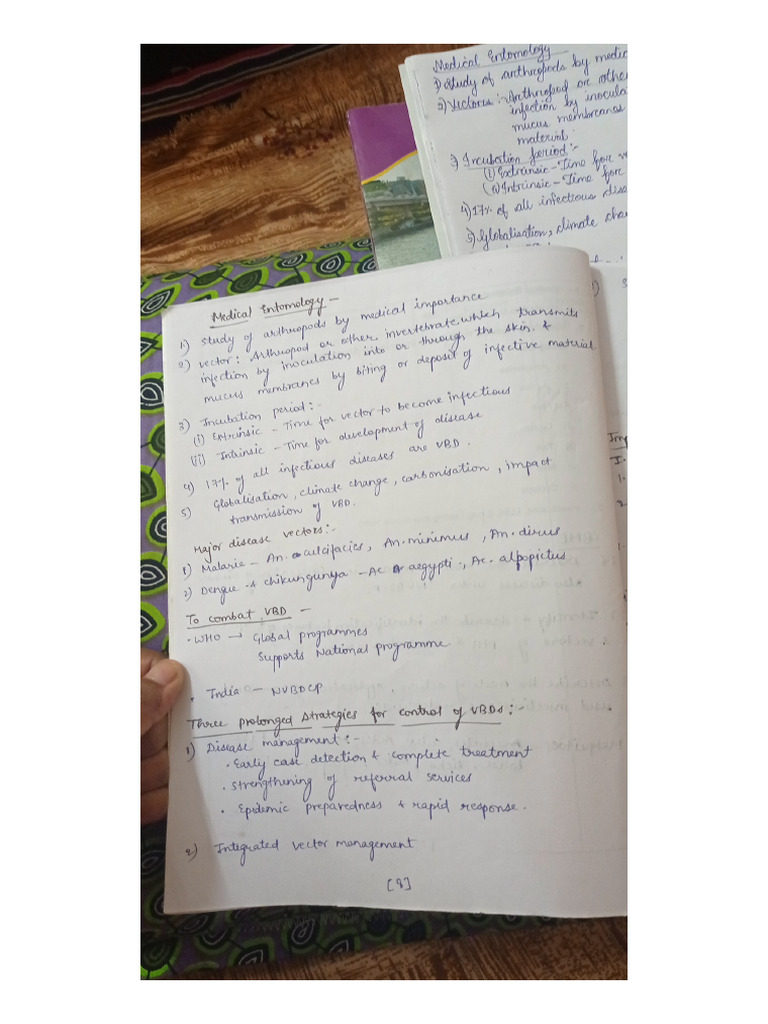 Medical Entomology -
1) Study of arthropods by medical importance
2) vector: Arthropod or other invertebrate which transmits
infection by inoculation into or through the skin, &
mucus membranes by biting or deposit of infective material
3) Incubation period:-
(i) Extrinsic - Time for vector to become infectious
(ii) Intrinsic - Time for development of disease
4) 17% of all infectious diseases are VBD.
5) Globalisation, climate change, carbonisation, impact
transmission of VBD.
Major disease vectors:-
1) Malaria - An. culcifacies, An. minimus, An. dirus
2) Dengue & chikungunya - Ae aegypti., Ae. alpopictus
To combat VBD -
• WHO → Global programmes
Supports National programme
• India - NVBDCP
Three prolonged strategies for control of VBDs:-
1) Disease management:-
• Early case detection & complete treatment
• Strengthening of referral services
• Epidemic preparedness & rapid response.
2) Integrated vector management
[8]
Medical Entomology
1) Study of arthropods by medic
2) Vectores:- Arthropod or othe
infection by inocula
mucus membranes
material:
3) Incubation period:-
(1) Extrinsic - Time for
(2) Intrinsic - Time for
4) 17% of all infectious dise
5) Globalisation, climate cha